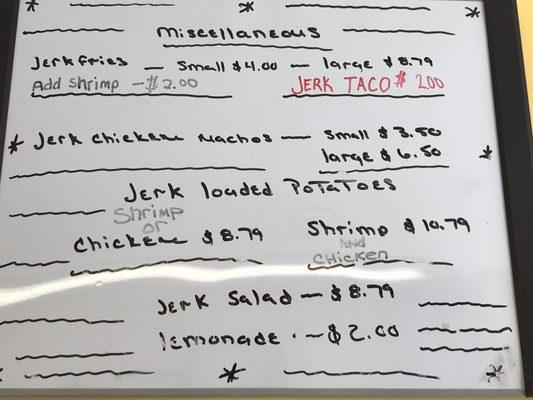 Miscellaneous
Jerk fries — Small $4.00 — large $8.79
Add Shrimp — $2.00 JERK TACO $2.00
Jerk chicken Nachos — Small $3.50
large $6.50
Jerk loaded Potatoes
Shrimp
or
Chicken $8.79 Shrimp $10.79
AND
CHICKEN
Jerk Salad — $8.79
lemonade . — $2.00